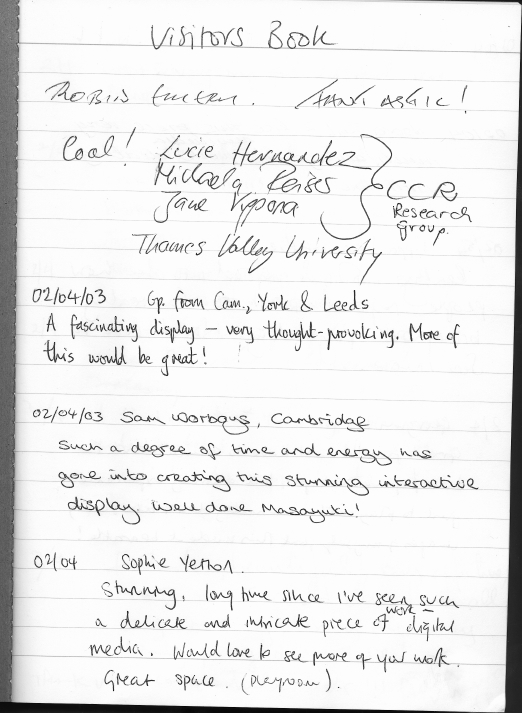 Visitors Book
Cool! Lucie Hernandez
Michaela Reises
Jane
CCR
Research
group.
Thames Valley University
02/04/03 Gp. from Cam., York & Leeds
A fascinating display – very thought-provoking. More of
this would be great!
02/04/03 Sam Worbays, Cambridge
such a degree of time and energy has
gone into creating this stunning interactive
display. Well done Masayuki!
02/04 Sophie
Stunning, long time since I've seen such
a delicate and intricate piece of work digital
media. Would love to see more of your work.
Great space. (playroom).